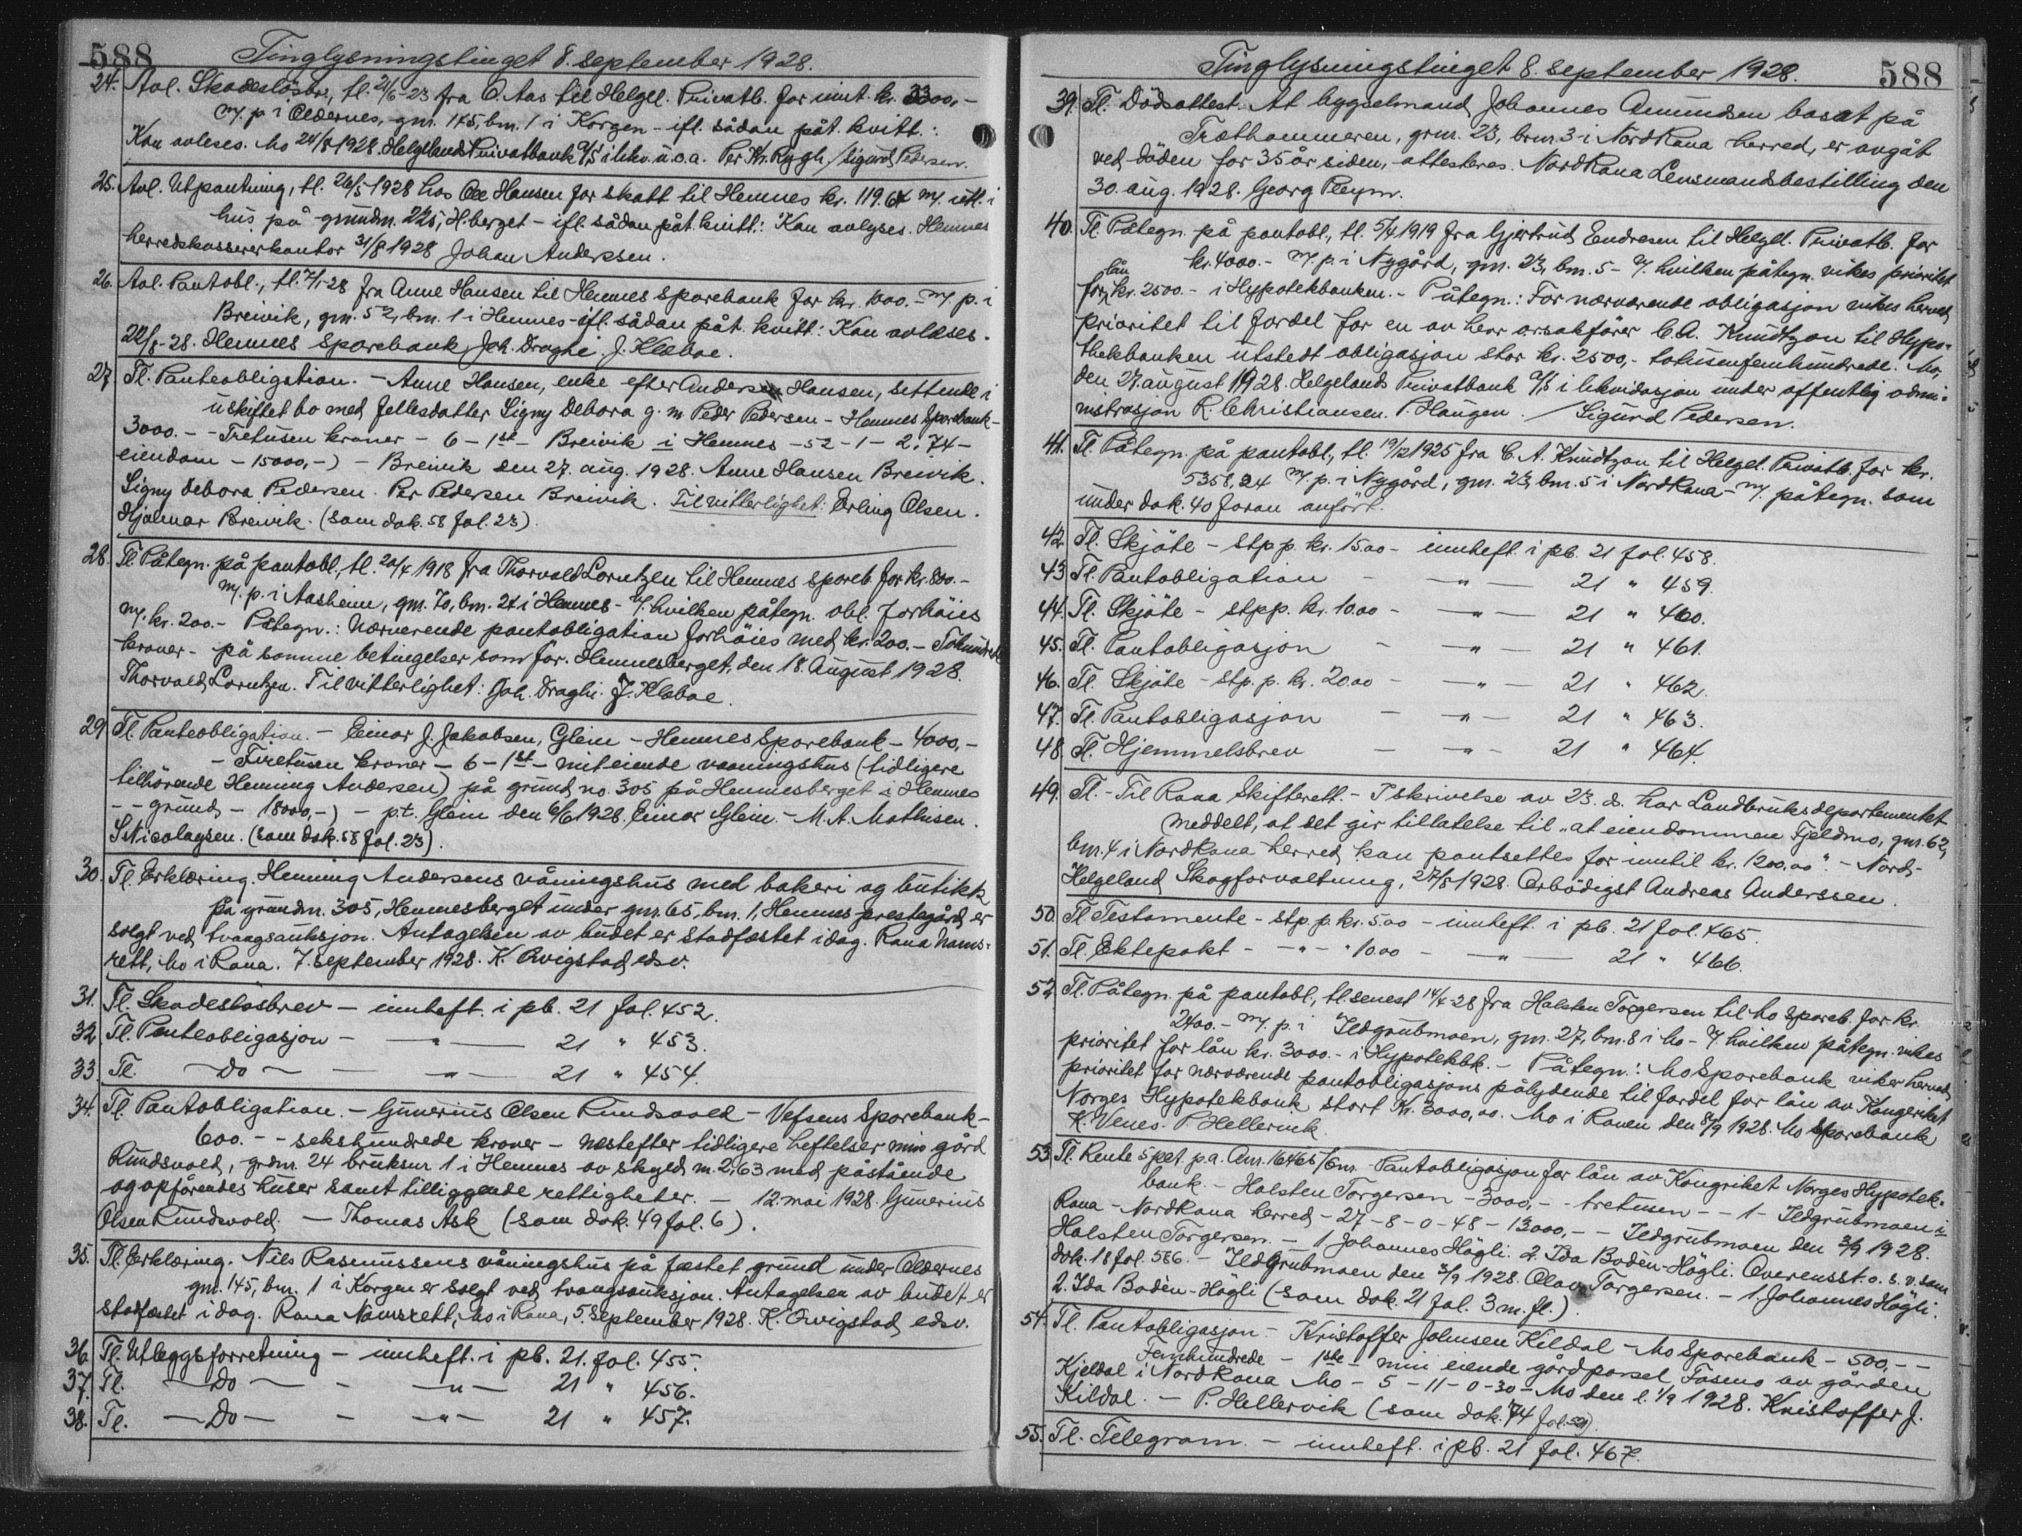 588
Tinglysningstinget 8. september 1928.
24. Avl. Skadeslösbr., tl. 21/6-23 fra O. Aas til Helgel. Privatb. for inntil kr. 3300,-
m. p. i Oldernes, gnr. 145, bnr. 1 i Korgen - ifl. sådan påt. kvitt.:
Kan avleses. Mo 24/8 1928. Helgelands Privatbank A/S i likv. u.o.a. Per Kr. Rygh /Sigurd Pedersen.
25. Avl. Utpantning, tl. 26/5 1928 hos Ole Hansen for skatt til Hemnes kr. 119.64 m. utl. i
hus på grundnr. 225, H.berget - ifl. sådan påt. kvitt.: Kan avlyses. Hemnes
herredskassererkontor 31/8 1928 Johan Anderssen.
26. Avl. Pantobl., tl. 7/1-28 fra Anne Hansen til Hemnes Sparebank for kr. 1000.- m. p. i
Breivik, gnr. 52, bnr. 1 i Hemnes - ifl. sådan påt. kvitt: Kan avlæses.
22/8-28. Hemnes Sparebank, Joh. Draghi. J. Klæboe.
27. Tl. Panteobligation. - Anne Hansen, enke efter Anders Hansen, sittende i
uskiftet bo med fellesdatter Signy Debora g. m. Peder Pedersen - Hemnes Sparebank -
3000.- - Tretusen kroner - 6 - 1ste - Breivik i Hemnes - 52 - 1 - 2.74 -
eiendom - 15000,-) - Breivik den 27. aug. 1928. Anne Hansen Breivik.
Signy Debora Pedersen. Per Pedersen Breivik. Til vitterlighet: Erling Olsen.
Hjalmar Breivik. (som dok. 58 fol. 23).
28. Tl. Påtegn. på pantobl., tl. 20/4 1918 fra Thorvald Lorntzen til Hemnes spareb. for kr. 800.-
m. p. i Aasheim, gnr. 70, bnr. 27 i Hemnes - v. hvilken påtegn. obl. forhöies
m. kr. 200.- Påtegn.: Nærværende pantobligation forhöies med kr. 200.- Tohundrede
kroner - på samme betingelser som för. Hemnesberget, den 18. August 1928.
Thorvald Lorntzen. Til vitterlighet: Joh. Draghi. J. Klæboe.
29. Tl. Panteobligation. - Einar J. Jakobsen, Glein - Hemnes Sparebank - 4000,-
- Firetusen kroner - 6 - 1ste - mit eiende vaaningshus (tidligere
tilhörende Henning Andersen) på grund no. 305 på Hemnesberget i Hemnes
- - grund - 18000,-) - pt. Glein den 6/6 1928. Einar Glein. - M. A. Mathisen.
S Nicolaysen. (som dok. 58 fol. 23).
30. Tl. Erklæring. Henning Andersens våningshus med bakeri og butikk
på grundnr. 305, Hemnesberget under gnr. 65, bnr. 1, Hemnes prestegård, er
solgt ved tvangsauksjon. Antagelsen av budet er stadfæstet idag. Rana Nams-
rett, Mo i Rana. 7. september 1928. K. Qvigstad, edsv.
31. Tl. Skadeslösbrev - innheft. i pb. 21 fol. 452.
32. Tl. Panteobligasjon - " - 21 " 453.
33. Tl. - Do - - " - 21 " 454.
34. Tl. Pantobligation. - Gunerius Olsen Rundsvold - Vefsens Sparebank -
600.- - sekshundrede kroner - næstefter tidligere heftelser min gård
Rundsvold, grdnr. 24 bruksnr 1 i Hemnes av skyld m. 2,63 med påstående
og opförendes huser samt tilliggende rettigheter. - 12. mai 1928. Gunerius
Olsen Rundsvold. - Thomas Ask (som dok. 49 fol. 6).
35. Tl. Erklæring. Nils Rasmussens våningshus på festet grund under Oldernes
gnr. 145, bnr. 1 i Korgen er solgt ved tvangsauksjon. Antagelsen av budet er
stadfæstet idag. Rana Namsrett, Mo i Rana, 5. september 1928. K. Qvigstad, edsv.
36. Tl. Utleggsforretning - innheft. i pb. 21. fol. 455.
37. Tl. - Do - - " - 21 " 456.
38. Tl. - Do - - " - 21 " 457.
Tinglysningstinget 8. september 1928.
588
39. Tl. Dödsattest. At bygselmand Johannes Amundsen bosat på
Træthammeren, grnr. 23, brnr. 3 i Nord Rana herred, er avgåt
ved döden for 35 år siden, attesteres. Nord Rana Lensmandsbestilling den
30. aug. 1928. Georg Pleym.
40. Tl. Påtegn. på pantobl., tl. 5/4 1919 fra Gjertrud Endresen til Helgel. Privatb. for
kr. 4000.- m. p. i Nygård, gnr. 23, bnr. 5 - v. hvilken påtegn. vikes prioritet
for lån kr. 2500.- i Hypotekbanken. - Påtegn.: For nærværende obligasjon vikes herved
prioritet til fordel for en av herr orsakförer C. A. Knudtzon til Hypo-
thekbanken utstedt obligasjon stor kr. 2500,- totusenfemhundrede. Mo,
den 27. august 1928. Helgelands Privatbank A/S i likvidasjon under offentlig admi-
nistrasjon R. Christiansen. P. Haugen. / Sigurd Pedersen.
41. Tl. Påtegn. på pantobl., tl. 19/12 1925 fra C. A. Knudtzon til Helgel. Privatb. for kr.
5358.24 m. p. i Nygård, gnr. 23, bnr. 5 i Nord Rana - m. påtegn. som
under dok. 40 foran anfört.
42. Tl. Skjöte - stp. p. kr. 15.00 - innheft. i pb. 21 fol. 458.
43. Tl. Pantobligation - - " - 21 " 459.
44. Tl. Skjöte - stp. p. kr. 10.00 - - " - 21 " 460.
45. Tl. Pantobligasjon - - " - 21 " 461.
46. Tl. Skjöte - stp. p. kr. 20.00 - - " - 21 " 462.
47. Tl. Pantobligasjon - - " - 21 " 463.
48. Tl. Hjemmelsbrev - - " - 21 " 464.
49. Tl. - Til Rana Skifterett. - I skrivelse av 23. ds. har Landbruksdepartementet
meddelt, at det gir tillatelse til "at eiendommen Fjeldmo, gnr. 62,
bnr. 4 i Nord Rana herred, kan pantsettes for inntil kr. 1200.00". - Nord-
Helgeland Skogforvaltning, 27/8 1928. Ærbödigst Andreas Anderssen.
50. Tl. Testamente - stp. p. kr. 5.00 - innheft. i pb. 21 fol. 465.
51. Tl. Ektepakt - - " - " 10.00 - - " - 21 " 466.
52. Tl. Påtegn. på pantobl., tl. senest 14/4-28 fra Halsten Torgersen til Mo Spareb. for kr.
2400.- m. p. i Ildgrubmoen, gnr. 27, bnr. 8 i Mo - v. hvilken påtegn. vikes
prioritet for lån kr. 3000.- i Hypotekbk. - Påtegn.: Mo Sparebank viker herved
prioritet for nærværende pantobligasjons pålydende til fordel for lån av Kongeriket
Norges Hypotekbank stort Kr. 3000,00. Mo i Ranen den 8/9 1928. Mo Sparebank
K. Venes. P. Hellervik.
53. Tl. Rente 5 pct. p. a. Anr. 16465/6mr. - Pantobligasjon for lån av Kongriket Norges Hypotek-
bank. - Halsten Torgersen - 3000,- - tretusen - - 1 - Ildgrubmoen i
Rana - Nord Rana herred - 27 - 8 - 0 - 48 - 13000,- - Ildgrubmoen den 3/9 1928.
Halsten Torgersen. - 1. Johannes Högli. 2. Ida Bodèn-Högli. Overensst. o. s. v. som
dok. 18 fol. 586. - Ildgrubmoen den 3/9 1928. Olav Torgersen. - 1. Johannes Högli.
2. Ida Bodèn-Högli (som dok. 21 fol. 3 m. fl.).
54. Tl. Pantobligasjon - Kristoffer Johnsen Kildal - Mo Sparebank - 500,- -
Femhundrede - 1ste - min eiende gårdparsel, Fosmo av gården
Kjeldal i Nord Rana Mo - 5 - 11 - 0 - 30 - Mo den 1. 1/9 1928. Kristoffer J.
Kildal. - P. Hellervik (som dok. 74 fol. 59).
55. Tl. Telegram. - innheft. i pb. 21 fol. 467.